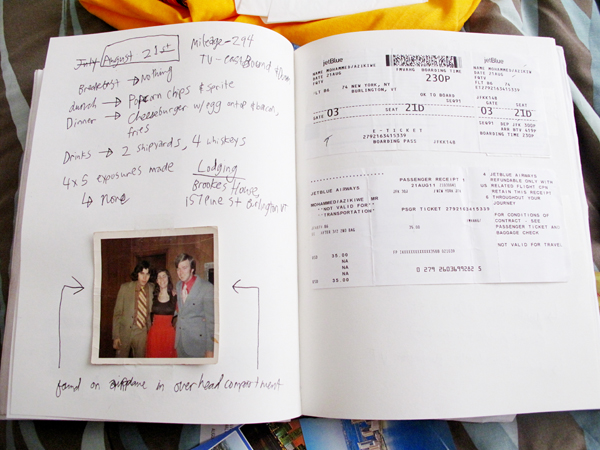 July August 21st
Mileage - 294
TV - east Bound & Down
Breakfast → Nothing
Lunch → Popcorn chips & sprite
Dinner → Cheeseburger w/ egg on top & bacon,
fries
Drinks → 2 shipyards, 4 whiskeys
4x5 exposures made
↳ none
Lodging
Brookes House,
157 Pine St Burlington VT
found on airplane in overhead compartment
jetBlue
NAME MOHAMMED/AZIKIWE
DATE 21AUG
FLT B6 74 NEW YORK, NY
BURLINGTON, VT
BOARDING TIME
230P
OK TO BOARD
GATE 03 SEAT 21D
E-TICKET
2792163415339
BOARDING PASS
JFK6148
jetBlue
NAME
MOHAMMED/AZIKIWE
DATE 21AUG
74
GATE SEAT
03 21D
DEP JFK 300P
ARR BTV 419P
BOARDING TIME 230P
JETBLUE AIRWAYS
MOHAMMED/AZIKIWE MR
**NOT VALID FOR**
**TRANSPORTATION**
PASSENGER RECEIPT 1
21AUG11
JFK6148
PSGR TICKET 2792163415339
35.00
NA
NA
NA
35.00
0 279 2603699282 5
JETBLUE AIRWAYS
REFUNDABLE ONLY WITH
US RELATED FLIGHT CPN
RETAIN THIS RECEIPT
THROUGHOUT YOUR
JOURNEY
FOR CONDITIONS OF
CONTRACT - SEE
PASSENGER TICKET AND
BAGGAGE CHECK
NOT VALID FOR TRAVEL